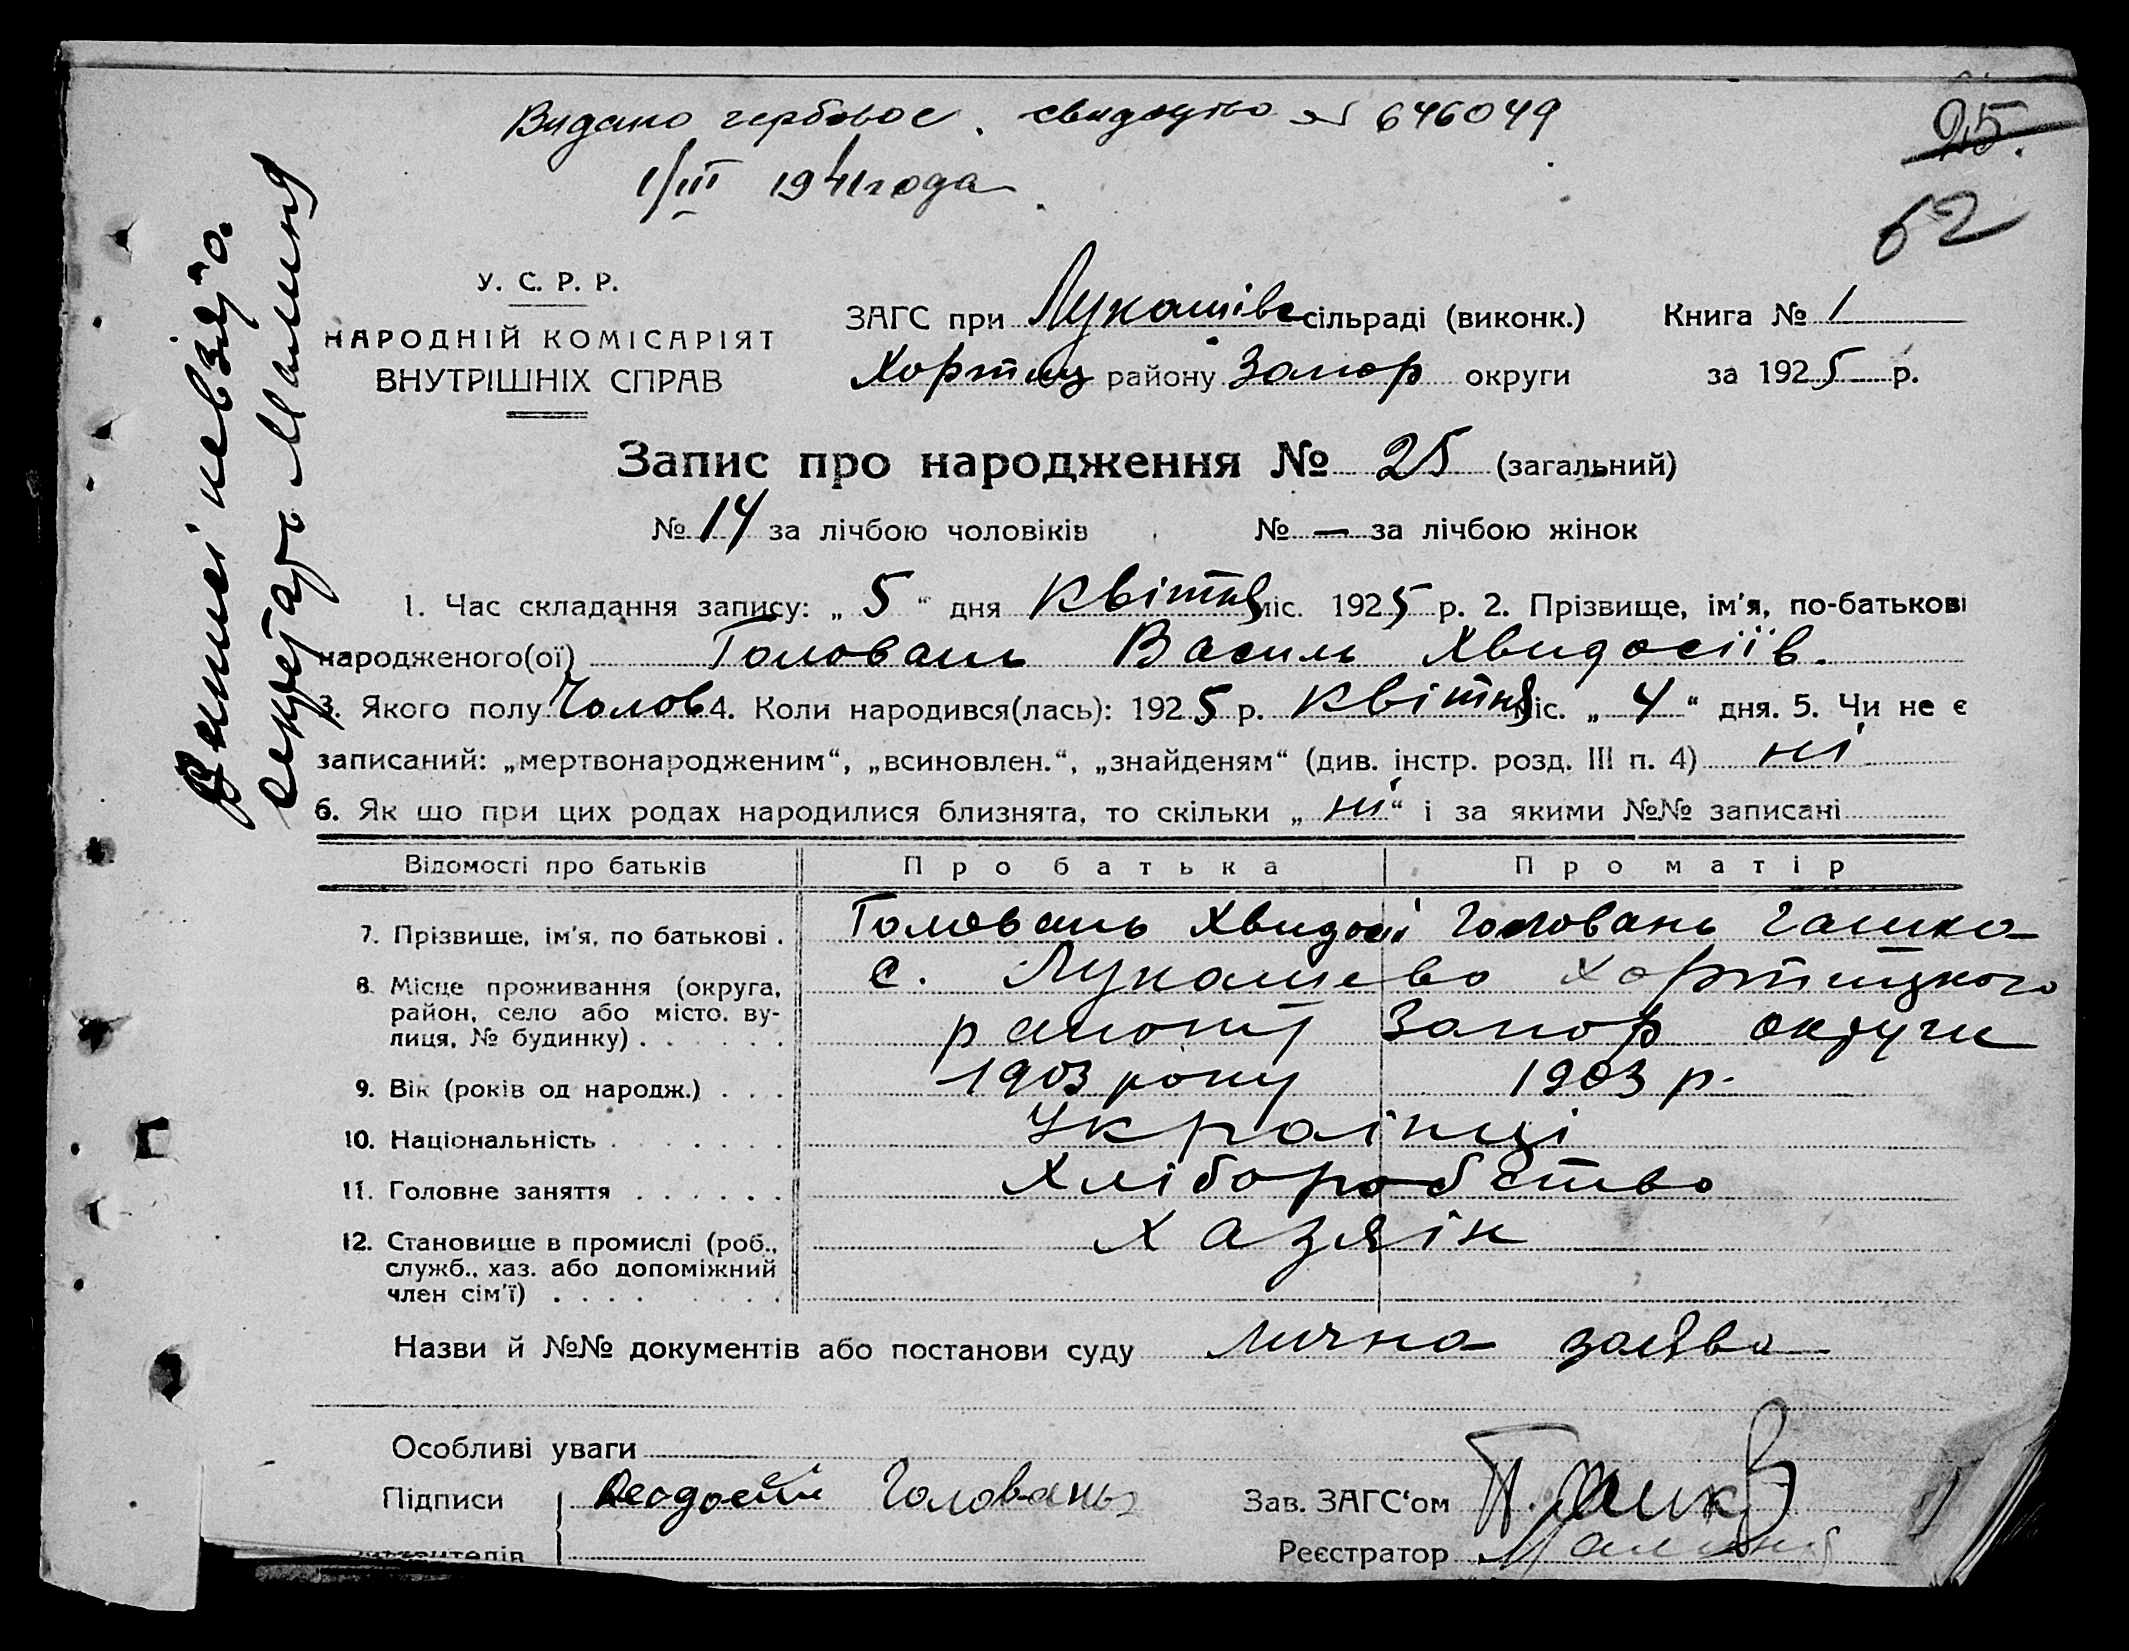 Видано гербовое свидоцтво № 646049
1/III 1941 года
25.
62
У. С. Р. Р.
НАРОДНІЙ КОМІСАРІЯТ
ВНУТРІШНІХ СПРАВ
ЗАГС при Лукашівс сільраді (виконк.) Книга № 1
Хортиц району Запор округи за 1925 р.
Запис про народження № 25 (загальний)
№ 14 за лічбою чоловіків № — за лічбою жінок
1. Час складання запису: „ 5 “ дня Квітня міс. 1925 р. 2. Прізвище, ім'я, по-батькові
народженого(ої) Головань Василь Хвидосіїв.
3. Якого полу Чолов 4. Коли народився(лась): 1925 р. Квітня міс. „ 4 “ дня. 5. Чи не є
записаний: „мертвонародженим“, „всиновлен.“, „знайденям“ (див. інстр. розд. III п. 4) ні
6. Як що при цих родах народилися близнята, то скільки „ ні “ і за якими №№ записані
Відомості про батьків Про батька Про матір
7. Прізвище, ім'я, по батькові . Головань Хвидосі Головань Гашка
8. Місце проживання (округа, с. Лукашево Хортицкого
район, село або місто, ву-
лиця, № будинку) . . . . . . району Запор округи
9. Вік (років од народж.) . . . 1903 року 1903 р.
10. Національність . . . . . . . Українці
11. Головне заняття . . . . . . Хліборобство
12. Становище в промислі (роб., Хазяїн
служб., хаз. або допоміжний
член сім'ї) . . . . . . . .
Назви й №№ документів або постанови суду лична заява
Особливі уваги
Підписи Феодосій Головань Зав. ЗАГС‘ом
Реєстратор Малиня
Ваншеі невзято.
секретарь Малиня